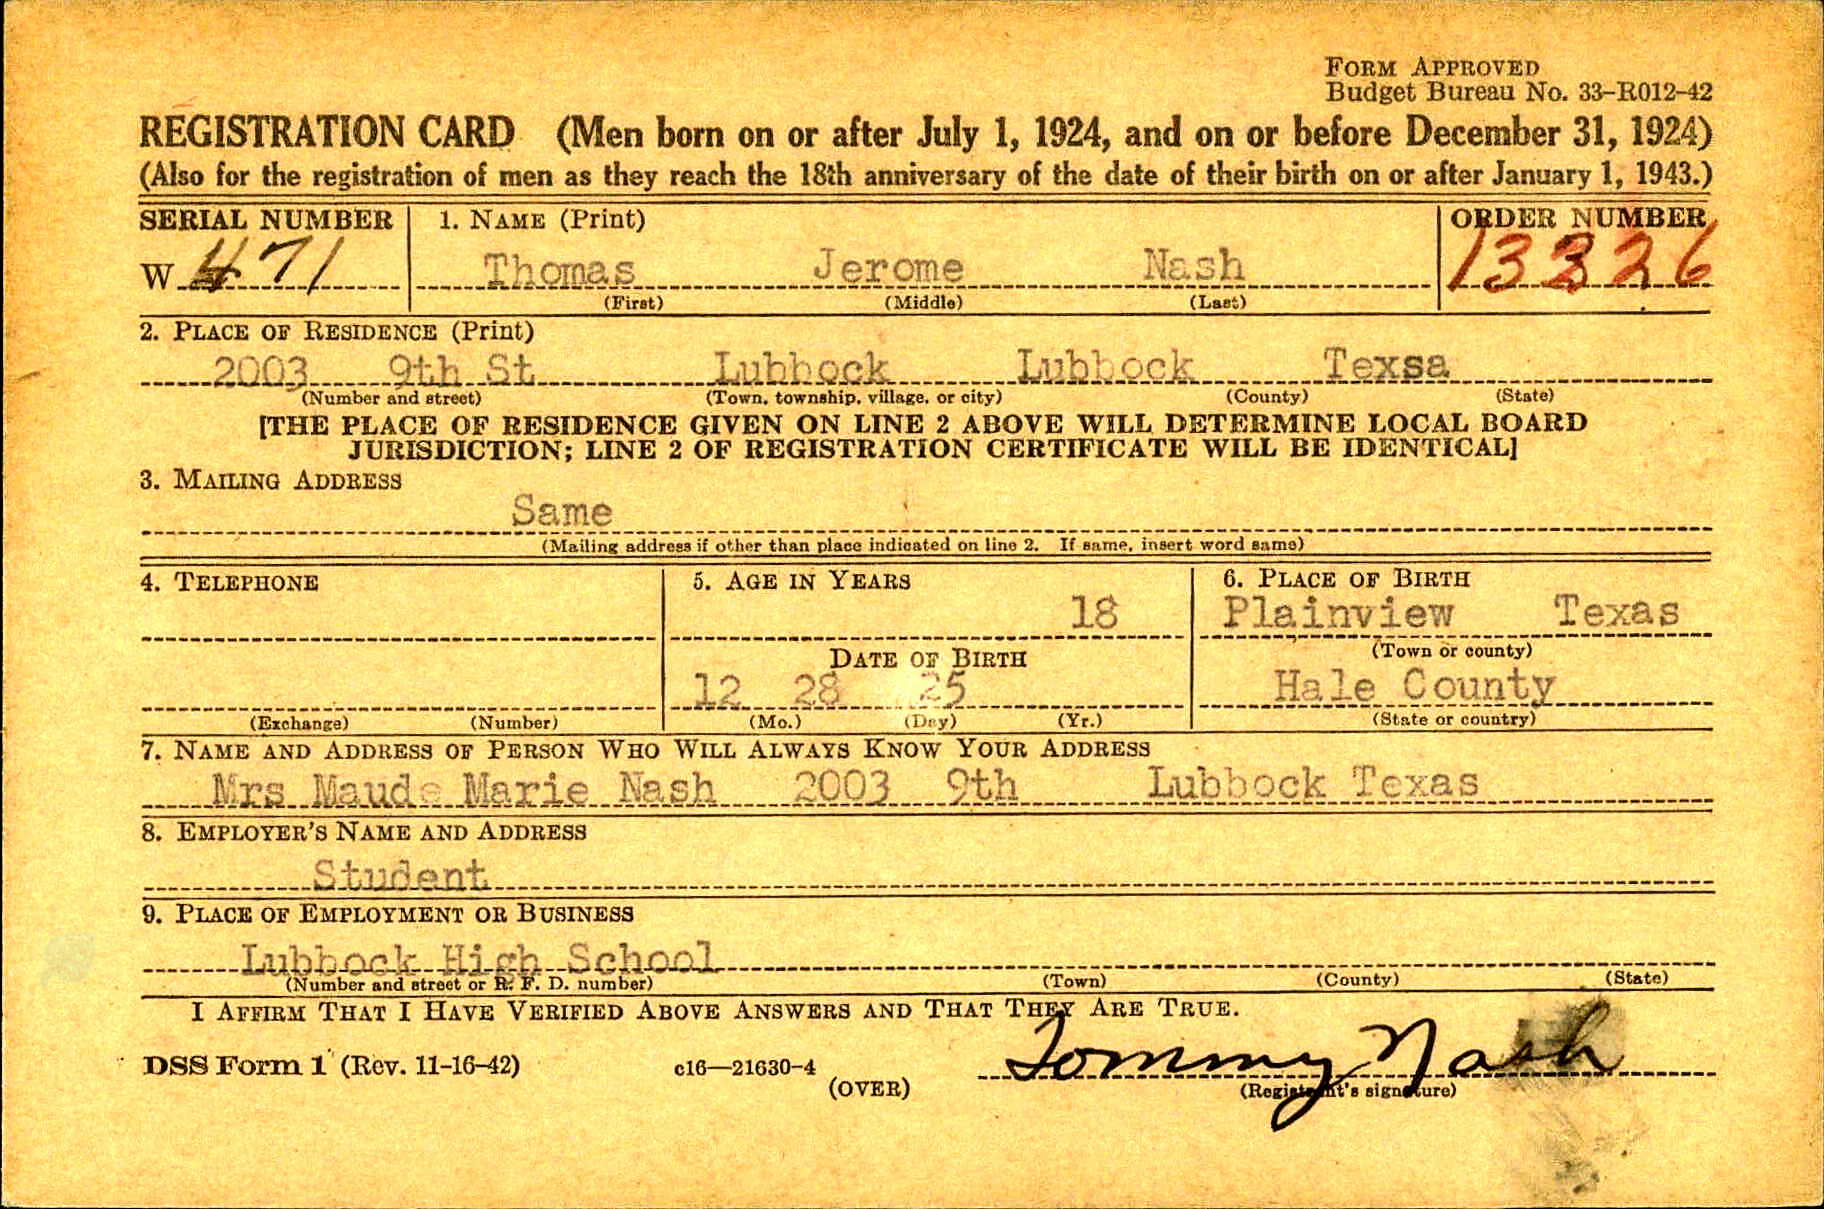 FORM APPROVED
Budget Bureau No. 33-R012-42
REGISTRATION CARD (Men born on or after July 1, 1924, and on or before December 31, 1924)
(Also for the registration of men as they reach the 18th anniversary of the date of their birth on or after January 1, 1943.)
SERIAL NUMBER 1. NAME (Print) ORDER NUMBER
W 471 Thomas Jerome Nash 13326
(First) (Middle) (Last)
2. PLACE OF RESIDENCE (Print)
2003 9th St Lubbock Lubbock Texsa
(Number and street) (Town, township, village, or city) (County) (State)
[THE PLACE OF RESIDENCE GIVEN ON LINE 2 ABOVE WILL DETERMINE LOCAL BOARD
JURISDICTION; LINE 2 OF REGISTRATION CERTIFICATE WILL BE IDENTICAL]
3. MAILING ADDRESS
Same
(Mailing address if other than place indicated on line 2. If same, insert word same)
4. TELEPHONE 5. AGE IN YEARS 6. PLACE OF BIRTH
18 Plainview Texas
DATE OF BIRTH (Town or county)
12 28 25 Hale County
(Exchange) (Number) (Mo.) (Day) (Yr.) (State or country)
7. NAME AND ADDRESS OF PERSON WHO WILL ALWAYS KNOW YOUR ADDRESS
Mrs Maude Marie Nash 2003 9th Lubbock Texas
8. EMPLOYER'S NAME AND ADDRESS
Student
9. PLACE OF EMPLOYMENT OR BUSINESS
Lubbock High School
(Number and street or R. F. D. number) (Town) (County) (State)
I AFFIRM THAT I HAVE VERIFIED ABOVE ANSWERS AND THAT THEY ARE TRUE.
Tommy Nash
DSS Form 1 (Rev. 11-16-42) c16—21630-4 (OVER) (Registrant's signature)